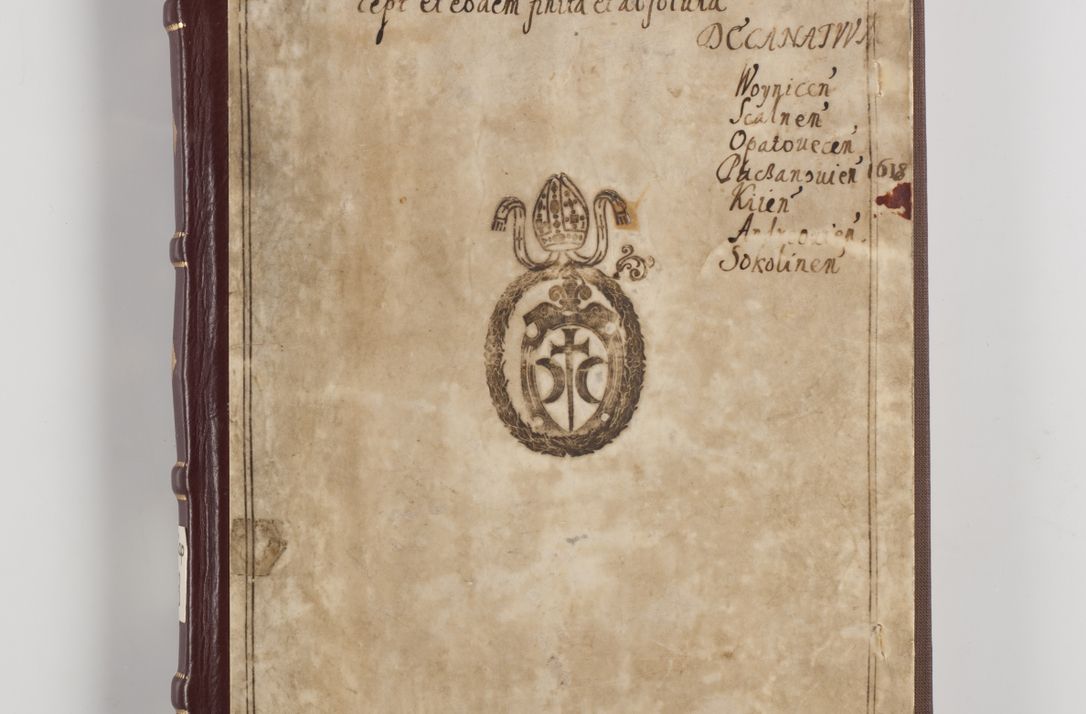 cept et eodem finita et absoluta
DECANATVVM
Woynicen̄
Scalnen̄
Opatouecen̄
Pacßanouien̄ 1618
Kiien̄
Andreouien̄
Sokolinen̄